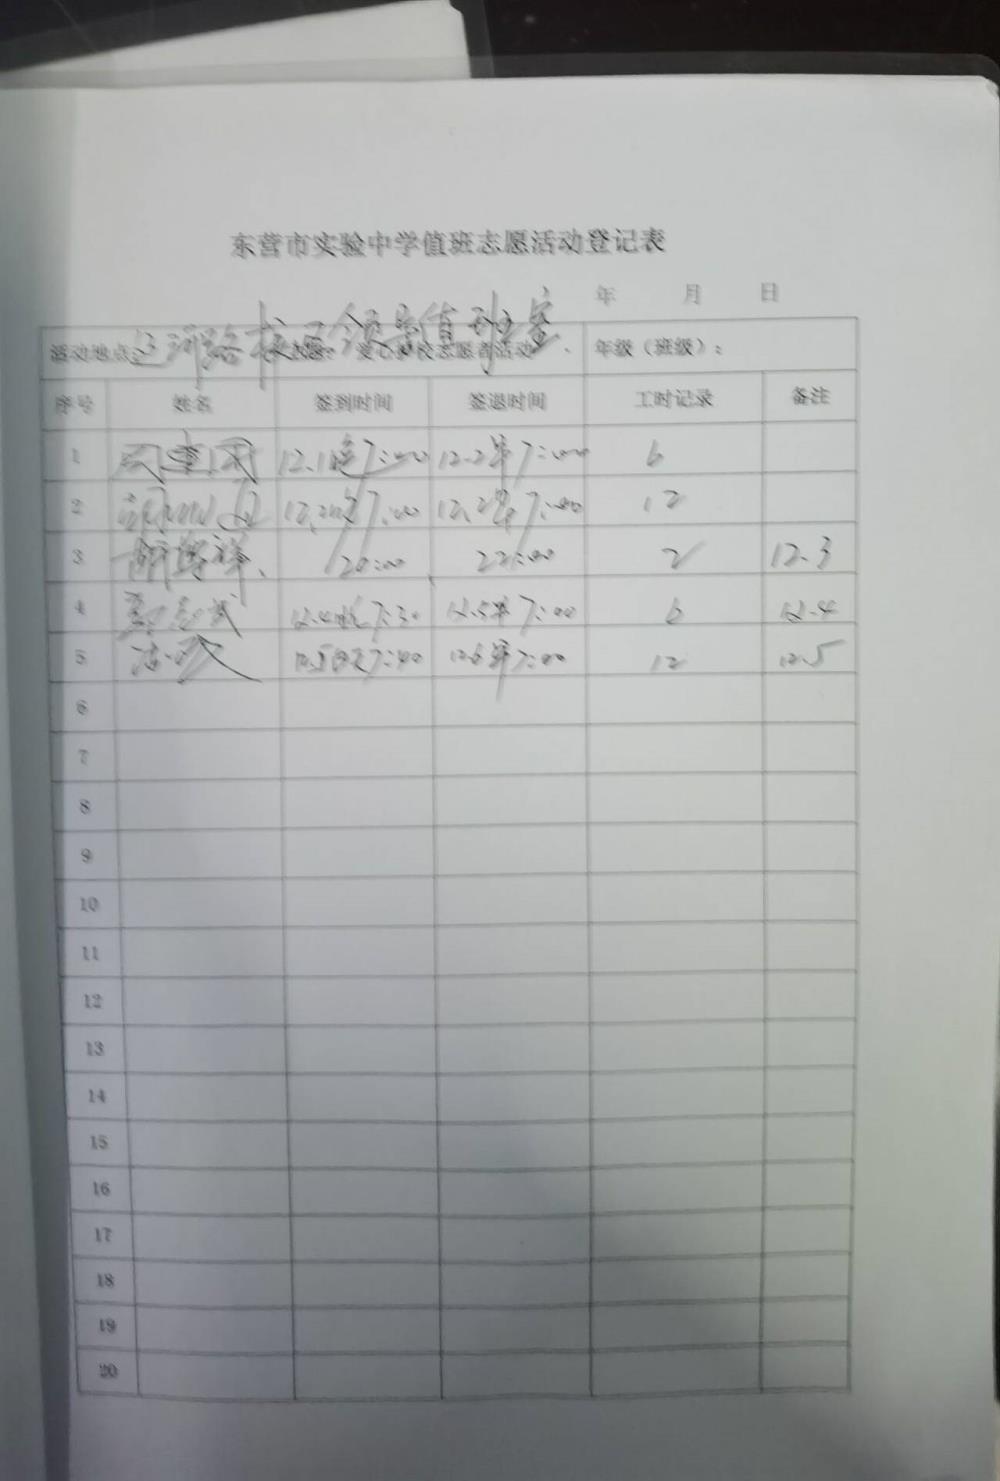 东营市实验中学值班志愿活动登记表
年 月 日
活动地点: 运河路校区领导值班室 主题: 爱心护校志愿者活动 年级（班级）:
序号 姓名 签到时间 签退时间 工时记录 备注
1 12.1晚7:00 12.2早7:00 6
2 7:00 7:00 12
3 20:00 22:00 2 12.3
4 12.4晚7:30 12.5早7:00 6 12.4
5 7:00 12.6早7:00 12 12.5
6
7
8
9
10
11
12
13
14
15
16
17
18
19
20